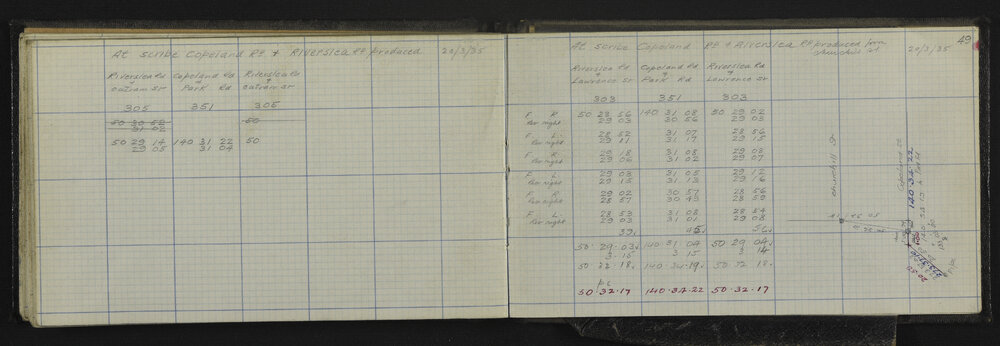 At scribe Copeland Rd & Riverslea Rd produced 20/3/35
Riverslea Rd & Outram St Copeland Rd & Park Rd Riverslea Rd & Outram St
305 351 305
50 30 52 50
31 02
50 29 14 140 31 22 50
29 05 31 04
49
At scribe Copeland Rd & Riverslea Rd produced from Churchill St 20/3/35
Riverslea Rd & Lawrence St Copeland & Park Rd Riverslea Rd & Lawrence St
303 351 303
F. R 50 28 56 140 31 08 50 29 02
Per night 29 03 30 56 29 05
F. L. 28 52 31 07 28 56
Per night 29 11 31 17 29 15
F. R. 29 18 31 08 29 08
Per night 29 06 31 02 29 07
F. L 29 08 31 05 29 12
Per night 29 15 31 13 29 16
F. R. 29 02 30 57 28 56
Per night 28 57 30 49 28 59
F. L. 28 53 31 08 28 54
Per night 29 03 31 01 29 08
39 45 56
50. 29. 03 140 31 04 50 29 04
3. 15 3 15 3 15
50 32 18 140. 34. 19 50. 32 18
50. 32. 17 140. 34. 22 50. 32. 17
Churchill St
Copeland St
140. 34. 22
41 45 05